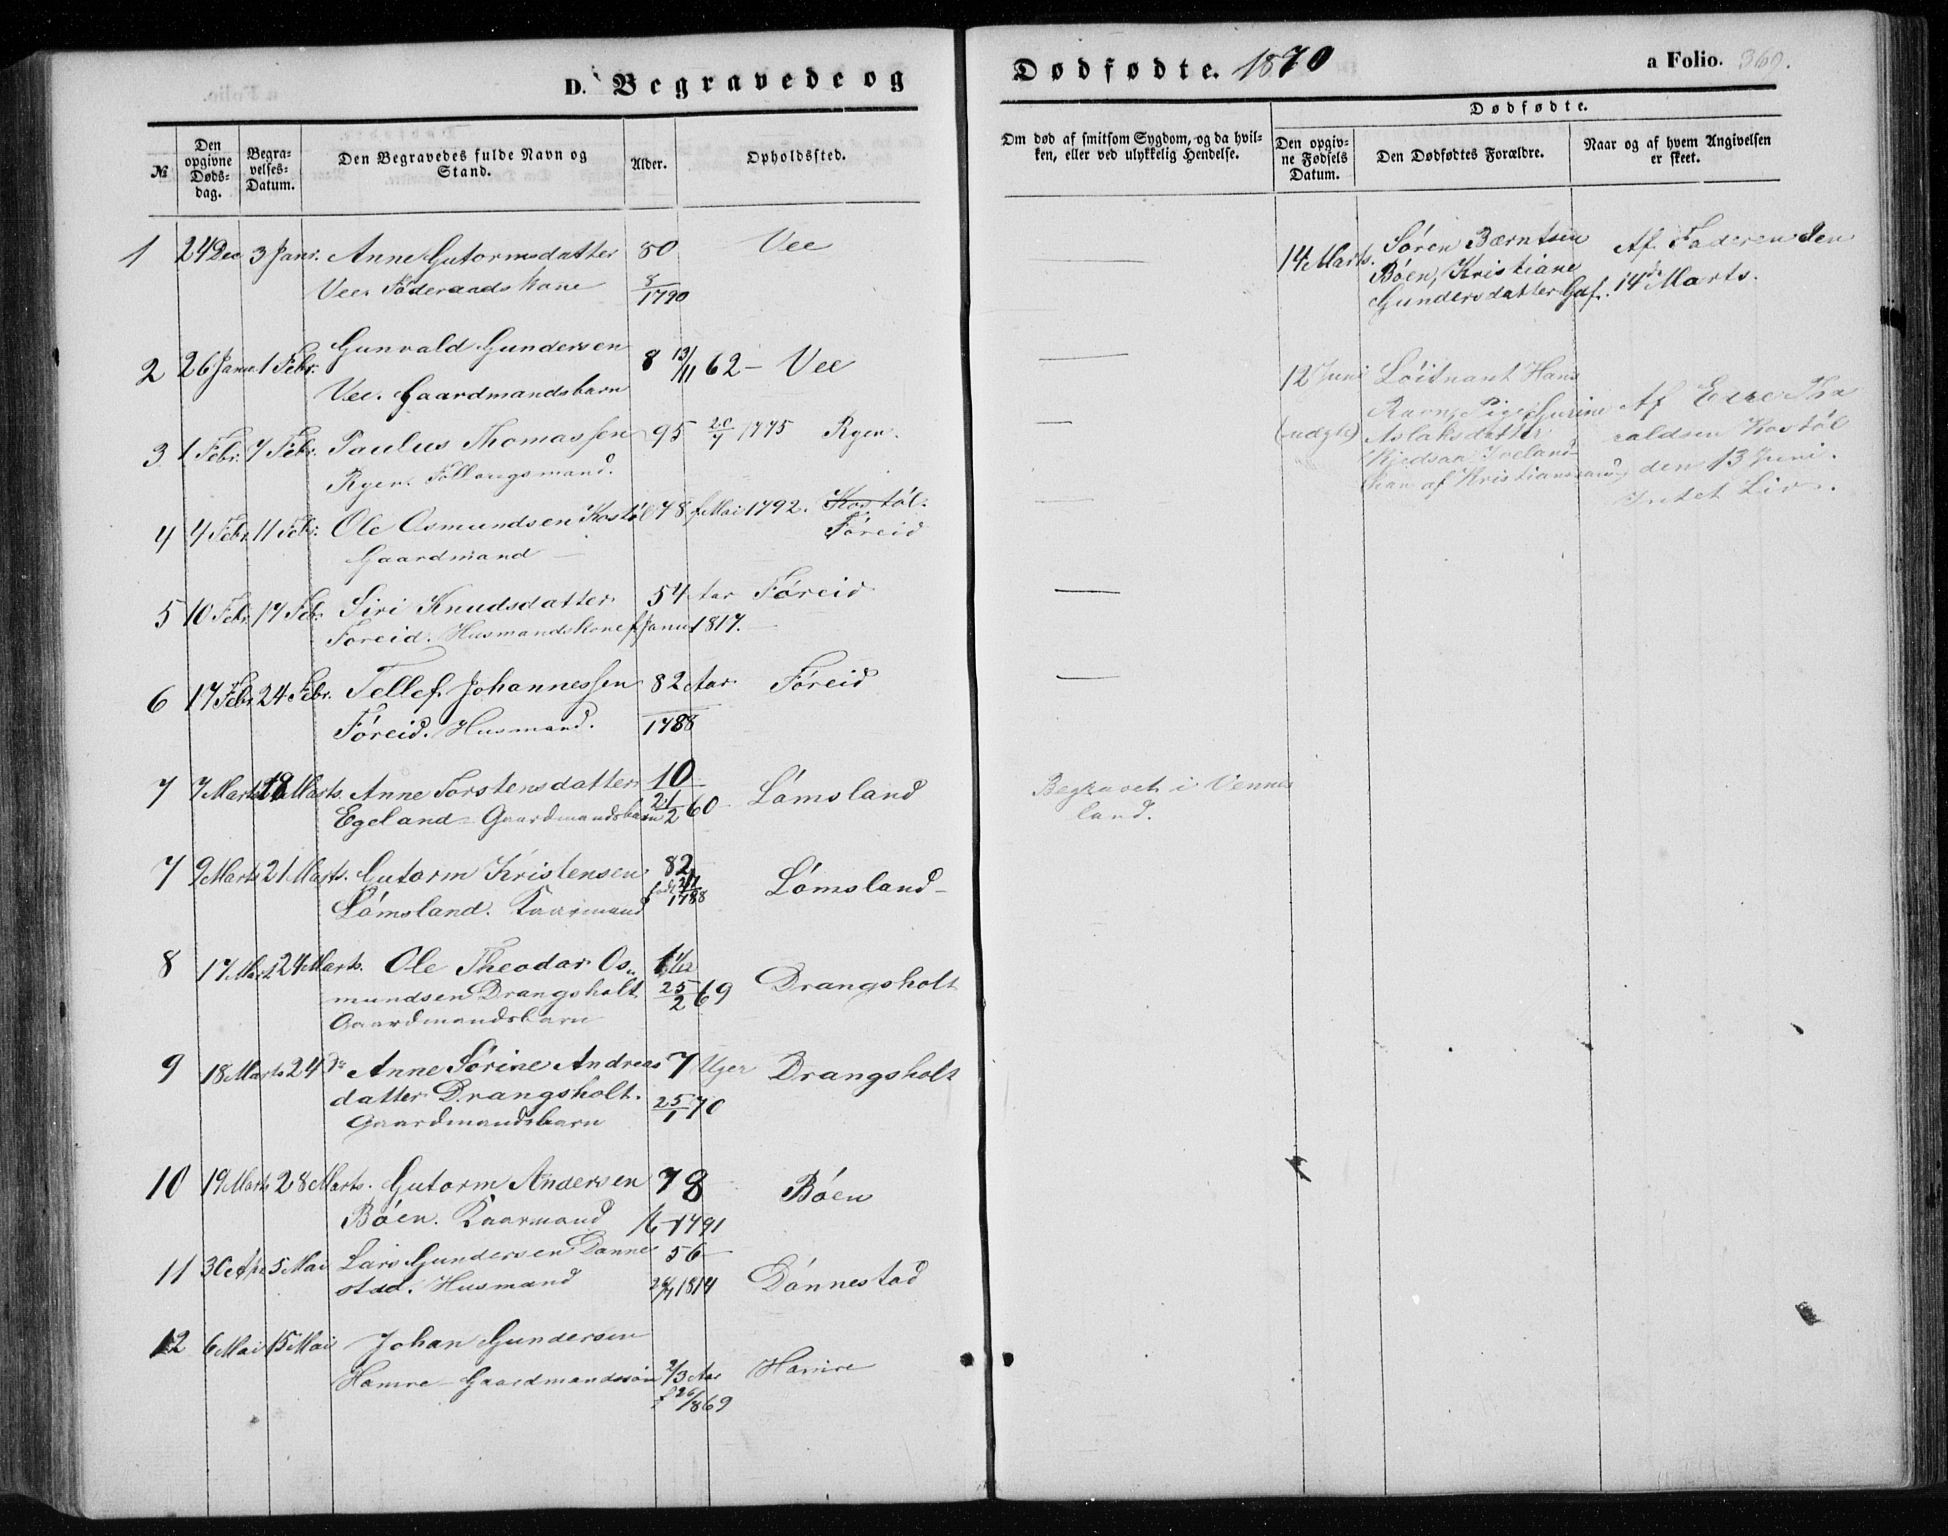 D. Begravede og
№
Den opgivne Døds-dag.
Begra-velses-Datum.
Den Begravedes fulde Navn og Stand.
Alder.
Opholdssted.
1 24 Dec 3 Janr. Anne Gutormsdatter 80 Vee
Vee. Føderaadskone 8/1790
2 26 Janu 1 Febr. Gunvald Gundersen 8 13/11 62 – Vee
Vee. Gaardmandsbarn
3 1 Febr. 7 Febr. Paulus Thomassen 95 20/7 1775 Ryen.
Ryen.
4 4 Febr. 11 Febr. Ole Osmundsen Kostøl 78 f Mai 1792. Kostøl.
Gaardmand – Føreid
5 10 Febr. 17 Febr. Siri Knudsdatter 54 Aar Føreid
Føreid. Husmandskone f Janu 1817.
6 17 Febr. 24 Febr. Tellef Johannessen 82 Aar Føreid
Føreid. Husmand. 1788
7 7 Marts Marts. Anne Torstensdatter 10 Lømsland
Egeland – Gaardmandsbarn 21/2 60
7 9 Marts 21 Marts. Gutorm Kristensen 82 Lømsland –
Lømsland. Kaarmand 1788
8 17 Marts 24 Marts. Ole Theodor Os- Drangsholt
mundsen Drangsholt 25/2 69
Gaardmandsbarn
9 18 Marts 24 do Anne Sørine Andreas 7 Uger Drangsholt
datter Drangsholt. 25/1 70
Gaardmandsbarn
10 19 Marts 28 Marts. Gutorm Andersen 78 Bøen
Bøen. Kaarmand 1791
11 30 Apr 5 Mai Lars Gundersen Dønne 56
stad. Husmand 1814 Dønnestad
12 6 Mai 15 Mai Johan Gundersen
Hamre – Gaardmandssøn 2/3 Aar Hamre
f 26/8 69
Dødfødte. 1870
a Folio. 369.
Om død af smitsom Sygdom, og da hvil-ken, eller ved ulykkelig Hendelse.
Dødfødte.
Den opgiv-ne Fødsels Datum.
Den Dødfødtes Forældre.
Naar og af hvem Angivelsen er skeet.
14 Marts. Søren Bærntsen Af Faderen den
Bøen, Kristiane 14de Marts.
Gundersdatter Gdf.
12 Juni Løitnant Hans
Ravn, Pige Gurine Af
(uægte) Aslaksdatter Kostøl
Kjedsaa Iveland den 13 Juni.
han af Kristianssand Intet Liv.
Begravet i Vennes
land.